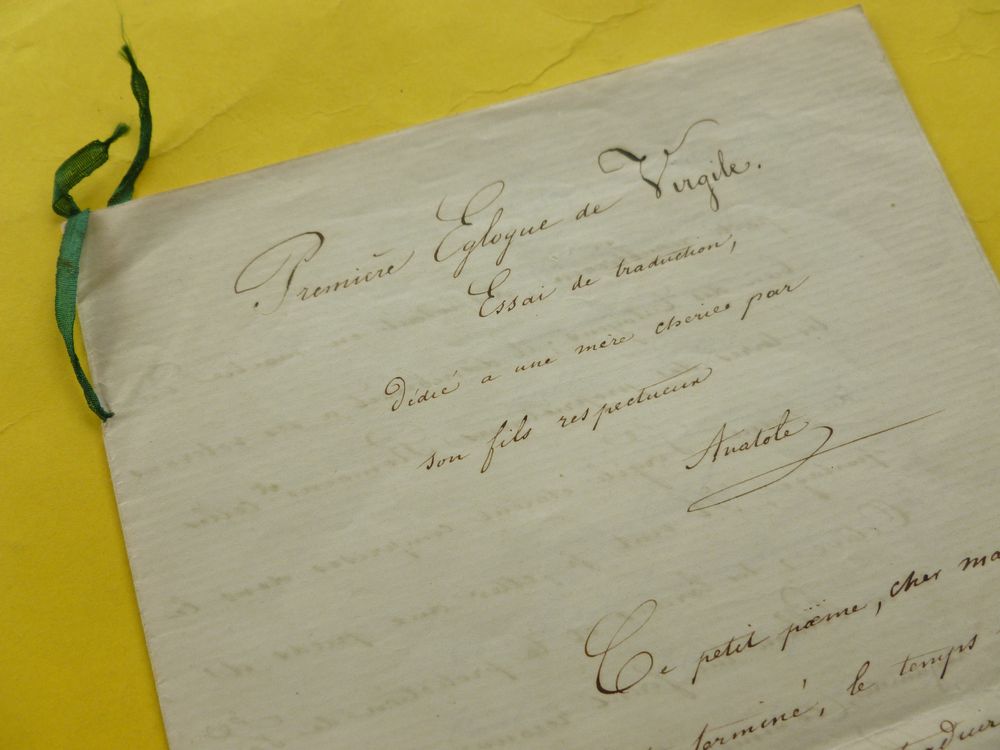 Première Eglogue de Virgile.
Essai de traduction,
Dédié a une mère cherie par
son fils respectueux
Anatole
Ce petit poëme, cher ma
terminé, le temps